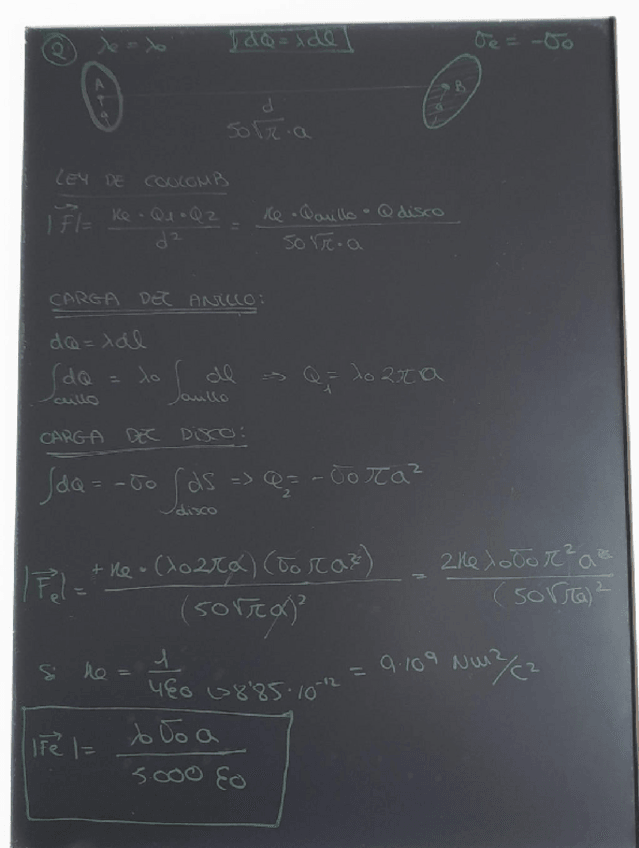 ② λe = λo |dQ = λdl| σe = -σo
A B
a d a
50√π·a
LEY DE COULOMB
|F⃗| = Ke·Q1·Q2 / d² = Ke·Qanillo·Qdisco / 50√π·a
CARGA DEL ANILLO:
dQ = λdl
∫anillo dQ = λo ∫anillo dl ⇒ Q1 = λo2πa
CARGA DEL DISCO:
∫dQ = -σo ∫disco dS ⇒ Q2 = -σoπa²
|F⃗e| = +Ke·(λo2πa)(σoπa²) / (50√πa)² = 2Keλoσoπ²a / (50√πa)²
Si Ke = 1/4ξo ↳8'85·10⁻¹² = 9·10⁹ Nm²/C²
|F⃗e| = λoσoa / 5000 ξo